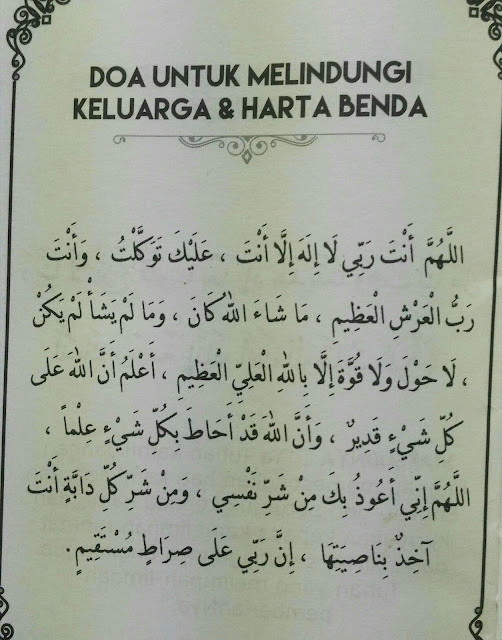 DOA UNTUK MELINDUNGI
KELUARGA & HARTA BENDA
اللَّهُمَّ أَنْتَ رَبِّي لَا إِلَهَ إِلَّا أَنْتَ ، عَلَيْكَ تَوَكَّلْتُ ، وَأَنْتَ
رَبُّ الْعَرْشِ الْعَظِيمِ ، مَا شَاءَ اللهُ كَانَ ، وَمَا لَمْ يَشَأْ لَمْ يَكُنْ
، لَا حَوْلَ وَلَا قُوَّةَ إِلَّا بِاللهِ الْعَلِيِّ الْعَظِيمِ ، أَعْلَمُ أَنَّ اللهَ عَلَى
كُلِّ شَيْءٍ قَدِيرٌ ، وَأَنَّ اللهَ قَدْ أَحَاطَ بِكُلِّ شَيْءٍ عِلْماً ،
اللَّهُمَّ إِنِّي أَعُوذُ بِكَ مِنْ شَرِّ نَفْسِي ، وَمِنْ شَرِّ كُلِّ دَابَّةٍ أَنْتَ
آخِذٌ بِنَاصِيَتِهَا ، إِنَّ رَبِّي عَلَى صِرَاطٍ مُسْتَقِيمٍ.